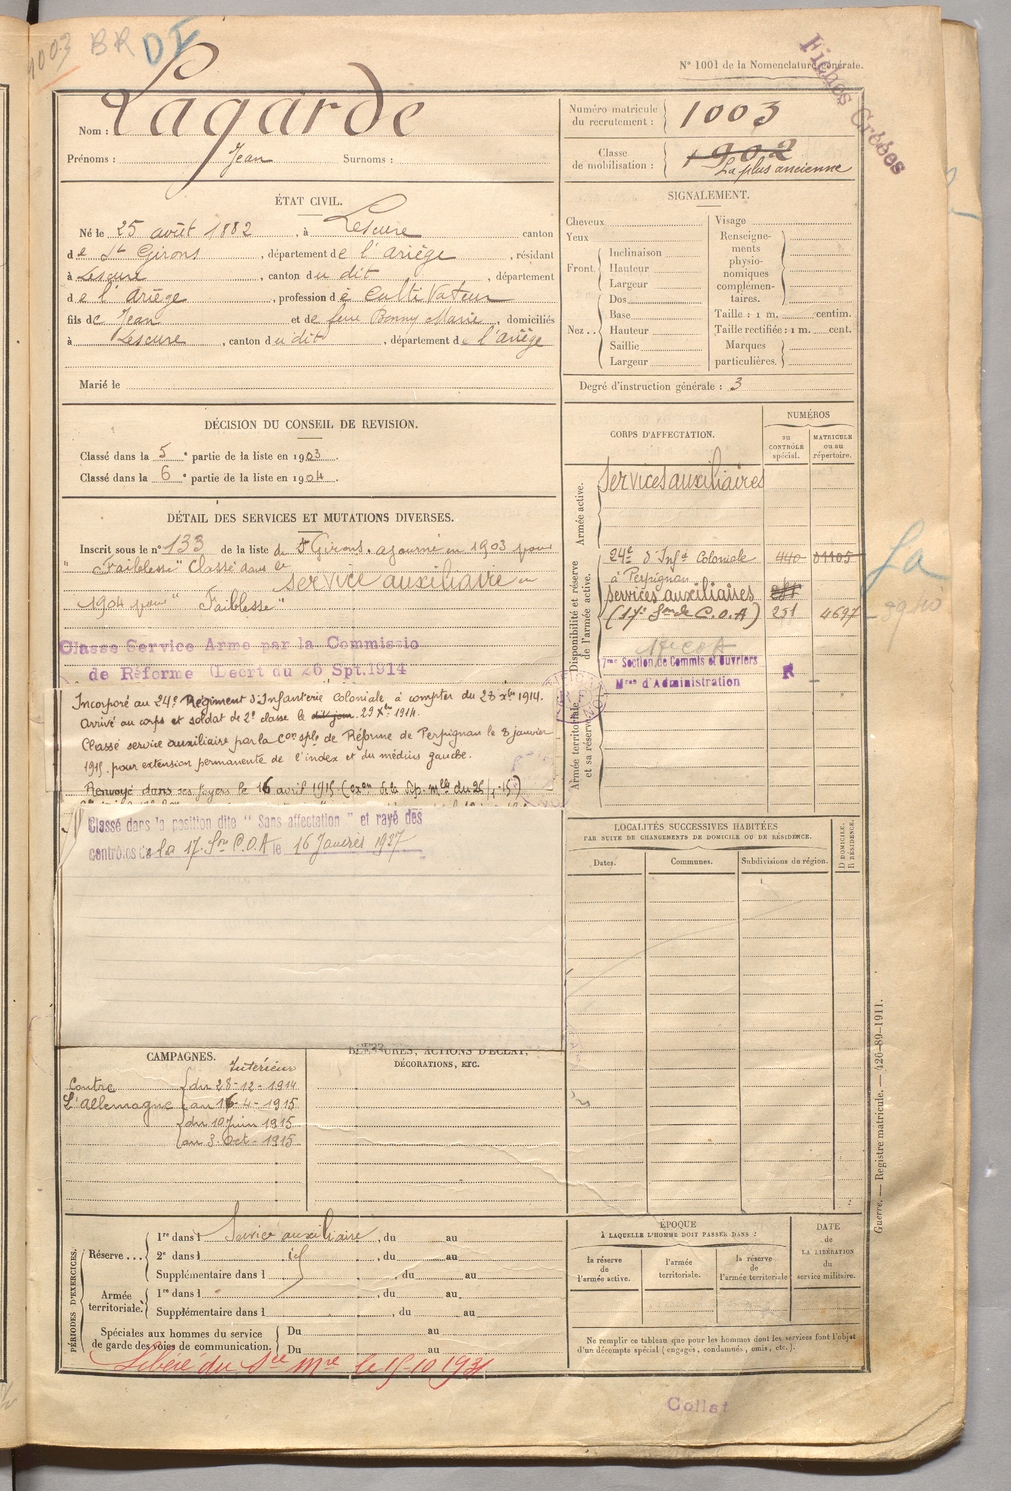 1003 BR DI
N° 1001 de la Nomenclature générale.
Fiches Créées
Nom : Lagarde
Prénoms : Jean Surnoms :
Numéro matricule du recrutement : 1003
Classe de mobilisation : 1902
La plus ancienne
ÉTAT CIVIL.
Né le 25 août 1882, à Lescure canton
de St Girons, département de l'ariège, résidant
à Lescure, canton du dit, département
de l'ariège, profession de cultivateur
fils de Jean et de feue Bonny Marie, domiciliés
à Lescure, canton du dit, département de l'ariège
Marié le
SIGNALEMENT.
Cheveux
Yeux
Front
Inclinaison
Hauteur
Largeur
Nez
Dos
Base
Hauteur
Saillie
Largeur
Visage
Renseignements physionomiques complémentaires.
Taille : 1 m. centim.
Taille rectifiée : 1 m. cent.
Marques particulières.
Degré d'instruction générale : 3
DÉCISION DU CONSEIL DE REVISION.
Classé dans la 5e partie de la liste en 1903.
Classé dans la 6e partie de la liste en 1904.
DÉTAIL DES SERVICES ET MUTATIONS DIVERSES.
Inscrit sous le n° 133 de la liste de St Girons. ajourné en 1903 pour
"Faiblesse" Classé dans le
service auxiliaire en
1904 pour "Faiblesse"
Classe Service Arme par la Commissio
de Réforme (Decrt du 26 Spt.1914
Incorporé au 24e Régiment d'Infanterie Coloniale à compter du 23 xbre 1914.
Arrivé au corps et soldat de 2e classe le dit jour 29 Xbre 1914.
Classé service auxiliaire par la Con sple de Réforme de Perpignan le 8 janvier
1915. pour extension permanente de l'index et du médius gauche.
Renvoyé dans ses foyers le 16 avril 1915
Classé dans la position dite "Sans affectation" et rayé des
contrôles de la 17e Son C.O.A le 16 Janvier 1927
CORPS D'AFFECTATION.
NUMÉROS
au contrôle spécial.
MATRICULE ou au répertoire.
Armée active.
Services auxiliaires
Disponibilité et réserve de l'armée active.
24e d'Inft Coloniale 440 01105
à Perpignan
Services auxiliaires
(17e Son de C.O.A) 251 4697
17e COA
7me Section de Commis et Ouvriers
Mres d'Administration
Armée territoriale et sa réserve.
LOCALITÉS SUCCESSIVES HABITÉES
PAR SUITE DE CHANGEMENTS DE DOMICILE OU DE RÉSIDENCE.
Dates. Communes. Subdivisions de région. D DOMICILE, R RÉSIDENCE.
CAMPAGNES.
Intérieur
Contre du 28-12-1914
L'Allemagne au 16-4-1915
du 10 Juin 1915
au 3. Oct-1915
BLESSURES, ACTIONS D'ÉCLAT,
DÉCORATIONS, ETC.
PÉRIODES D'EXERCICES.
Réserve...
1re dans l Service auxiliaire, du au
2e dans l id, du au
Supplémentaire dans l, du au
Armée territoriale.
1re dans l, du au
Supplémentaire dans l, du au
Spéciales aux hommes du service de garde des voies de communication.
Du au
Du au
Libéré du Sce Mre le 15-10 1931
ÉPOQUE
À LAQUELLE L'HOMME DOIT PASSER DANS :
la réserve de l'armée active.
l'armée territoriale.
la réserve de l'armée territoriale
DATE de LA LIBÉRATION du service militaire.
Ne remplir ce tableau que pour les hommes dont les services font l'objet
d'un décompte spécial (engagés, condamnés, omis, etc.).
Guerre. — Registre matricule. — 426-89-1911.
Collat